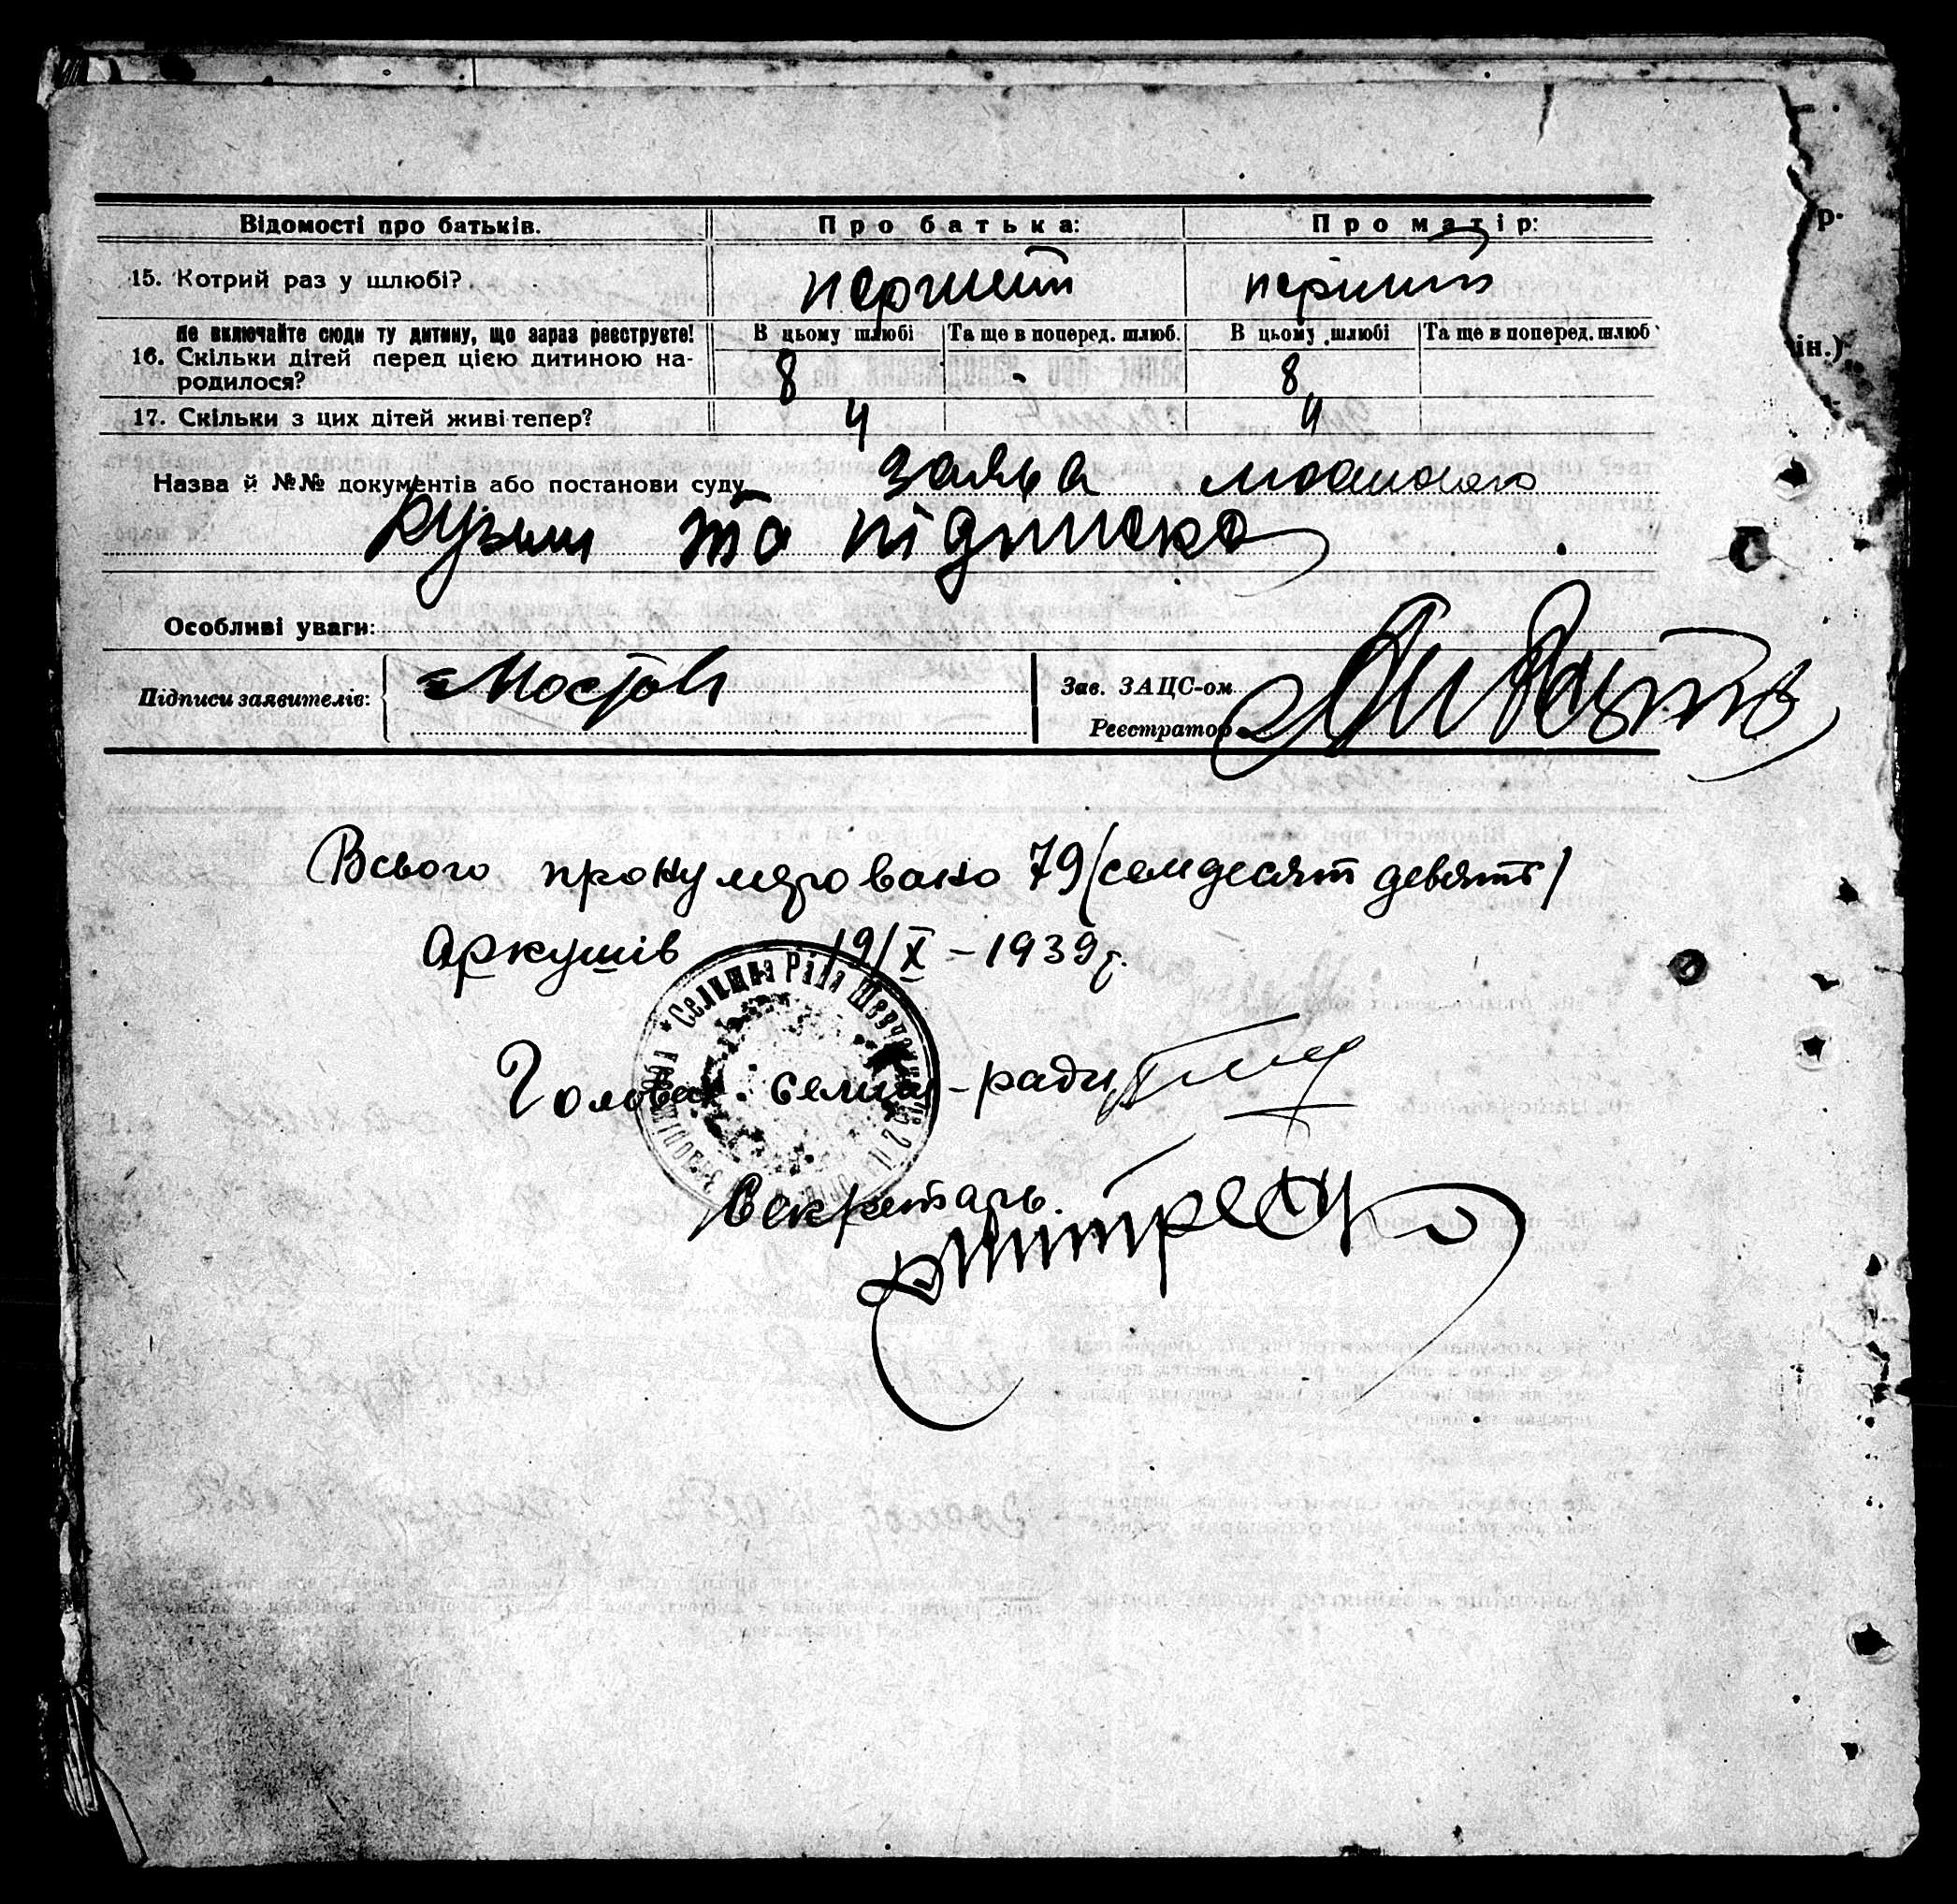 Відомості про батьків. Про батька: Про матір:
15. Котрий раз у шлюбі? перший перший
Не включайте сюди ту дитину, що зараз реєструєте! В цьому шлюбі Та ще в поперед. шлюб. В цьому шлюбі Та ще в поперед. шлюб
16. Скільки дітей перед цією дитиною на- 8 - 8
родилося?
17. Скільки з цих дітей живі тепер? 4 4
Назва й №№ документів або постанови суду заява
Кузьми та підписка
Особливі уваги:
Підписи заявителів: Зав. ЗАЦС-ом
Реєстратор
Всього пронумеровано 79 (семдесят девять)
аркушів 19/X – 1939 г.
Голова селищ-ради
Секретарь.
* Селищна Рада
р.
ін.)